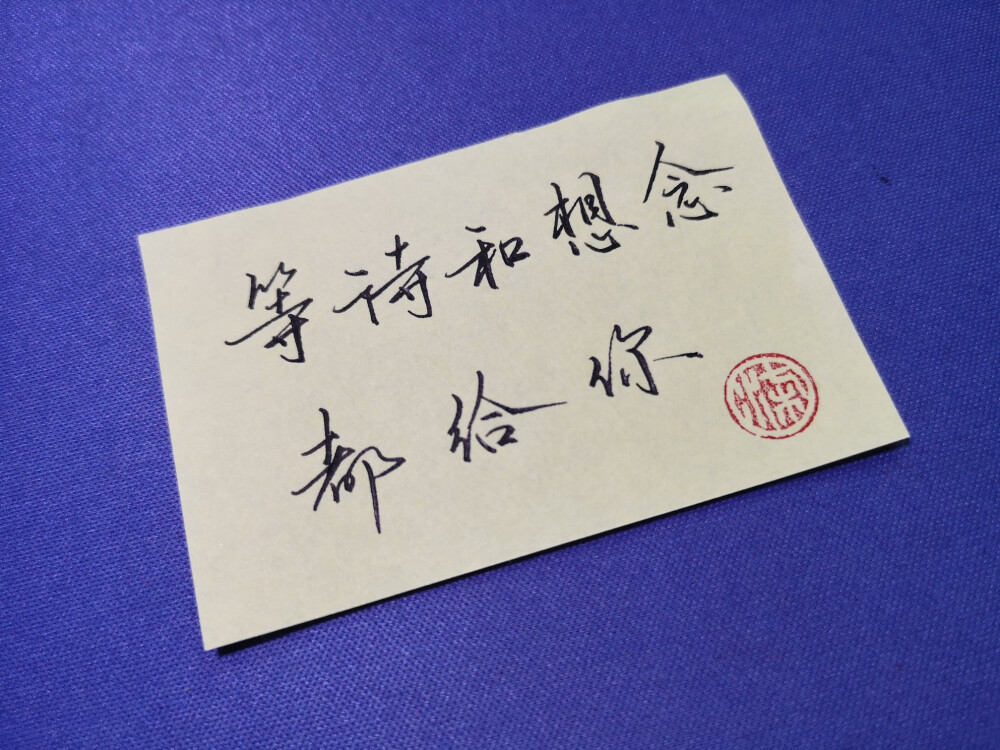 等待和想念
都给你